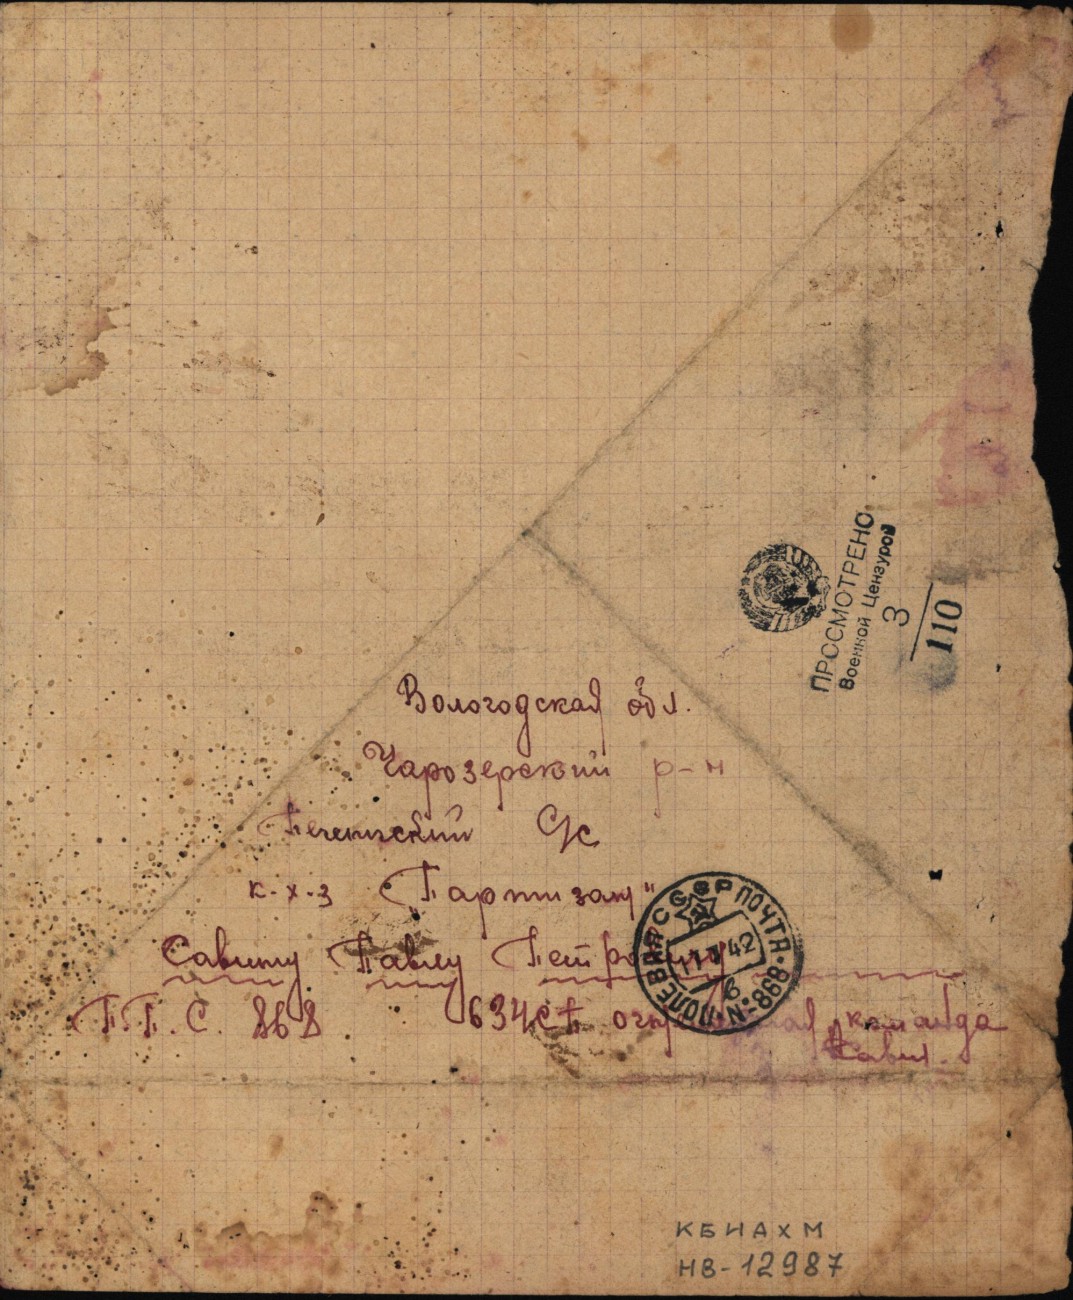 ПРОСМОТРЕНО
Военной Цензурой
3
110
Вологодская обл.
Чарозерский р-н
Печенгский С/с
к-х-з "Партизан"
Савину Павлу Петровичу
П.П.С. 868 634 команда
Савин.
СССР ПОЧТА
ПОЛЕВАЯ
N-868
42
КБИАХМ
НВ-12987